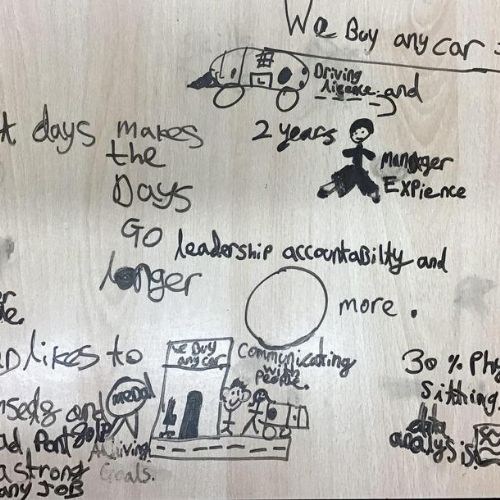 We Buy any car
Driving
licence and
t days makes
the
Days
Go
longer
2 years
Manager
Expience
leadership accountabilty and
more.
likes to
we Buy
any car
Communicating
with
People.
medal
and
Achiving
Goals.
a strong
any JOB
30% Phy
Sitthing.
data
analysis